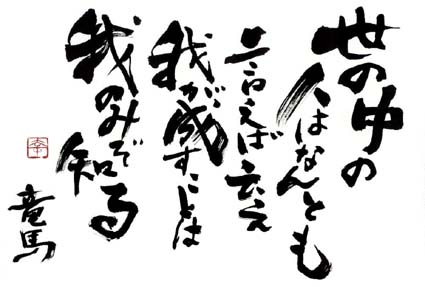 世の中の
人はなんとも
言えば云え
我が成すことは
我のみぞ知る
竜馬